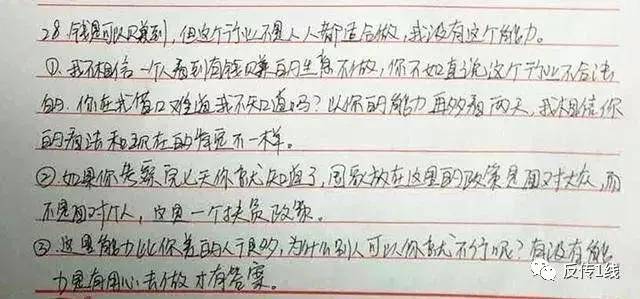 28.钱是可以赚到,但这个行业不是人人都适合做,我没有这个能力。
①.我不相信一个人看到有钱赚的生意不做,你不如直说这个行业不合法
的.你在找借口难道我不知道吗?以你的能力再多看两天,我相信你
的看法和现在的肯定不一样。
②.如果你考察完七天你就知道了,国家放在这里的政策是面对大众,而
不是面对个人,这是一个扶贫政策。
③.这里能力比你差的人很多,为什么别人可以你就不行呢?有没有能
力是有用心去做才有答案。
反传1线